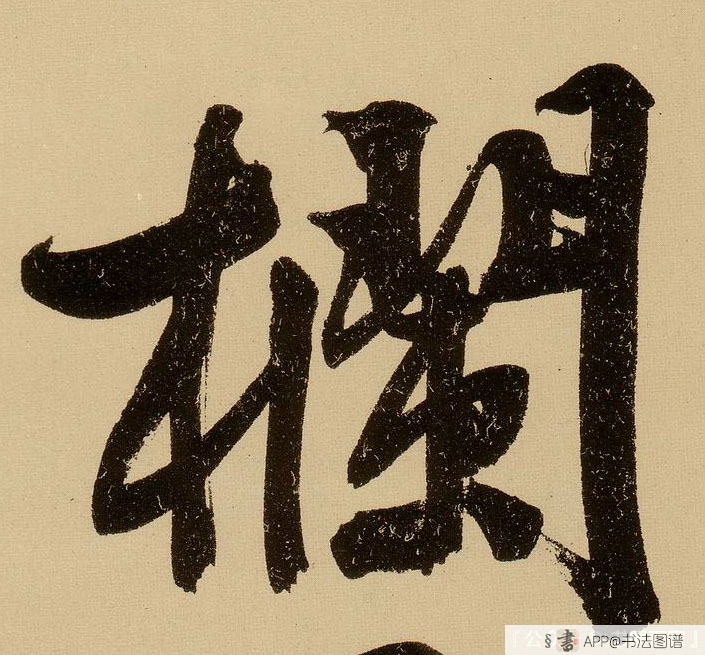 欄
§書 APP@书法图谱